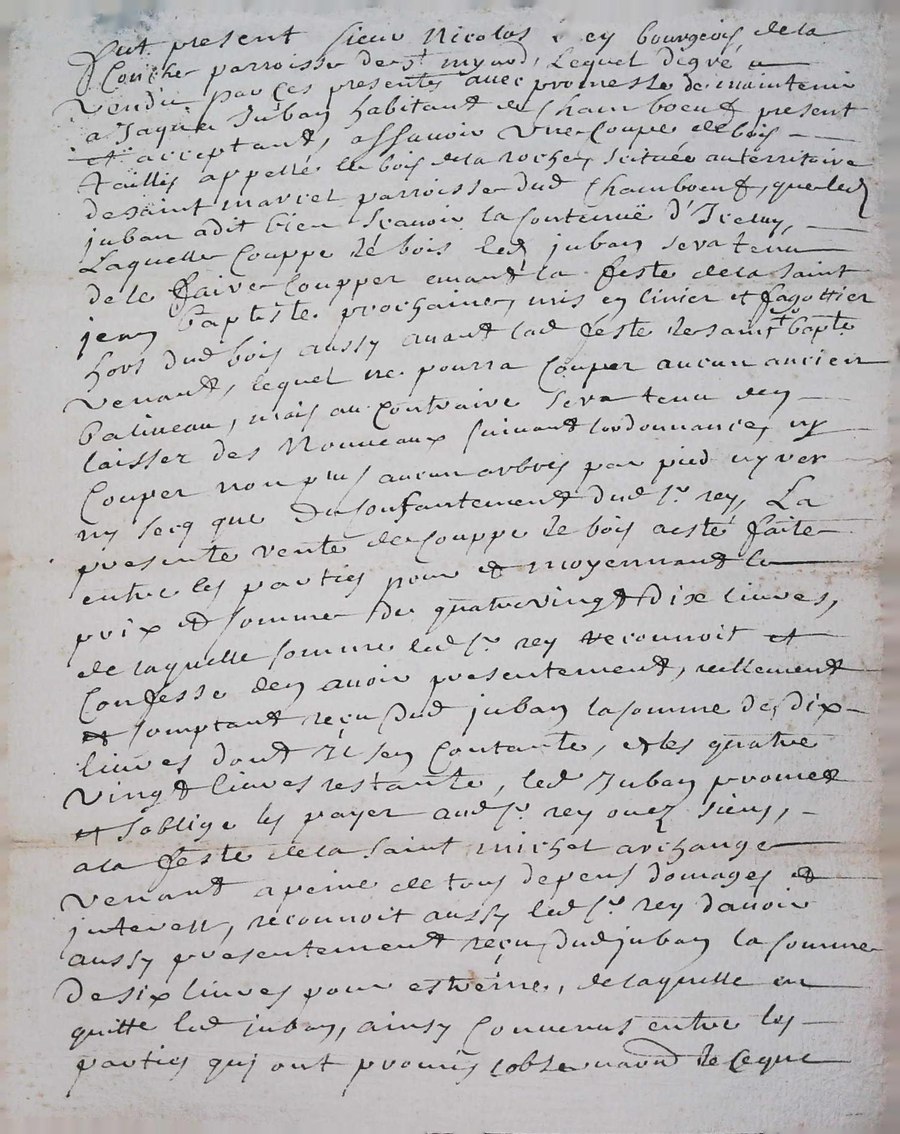 fut present sieur Nicolas rey bourgeois de la
Conche parroisse de st myard, Lequel degré a
vendu par ces presentes avec promesse de maintenir
a Jaques Juban habitant de Chamboeuf present
et acceptant, assavoir une Coupe de bois
taillis appellé le bois de la roche, scituée au territoire
de saint marcel parroisse dud Chamboeuf, que led
juban a dit bien scavoir la Contenuë d'Iceluy,
Laquelle Couppe de bois led juban sera tenu
de le faire Coupper avant la feste de la saint
jean baptiste prochaine, mis en linier et fagottier
hors dud bois aussy avant lad feste de saint bapte
venant, lequel ne pourra Couper aucun ancien
balineau, mais au Contraire sera tenu den
laisser des Nouveaux suivant lordonnance, ny
Couper non plus aucun arbres par pied ny ver
ny secq que du Consantement dud sr rey, La
presente vente de Couppe de bois a esté faite
entre les parties pour et moyennant le
prix et somme de quatre vingt dix livres,
de laquelle somme led sr rey reconnoit et
Confesse den avoir presentement, reellement
et Comptant reçu dud juban la somme de dix
livres dont il sen Contante, et les quatre
vingt livres restante, led Juban promet
et soblige les payer aud sr rey ou ez siens,
a la feste de la saint michel archange
venant a peine de tous depens domages et
interest, reconnoit aussy led sr rey davoir
aussy presentement reçu dud juban la somme
de six livres pour estreine, de laquelle en
quitte led juban, ainsy Convenus entre les
parties qui ont promis lobservation de ce que